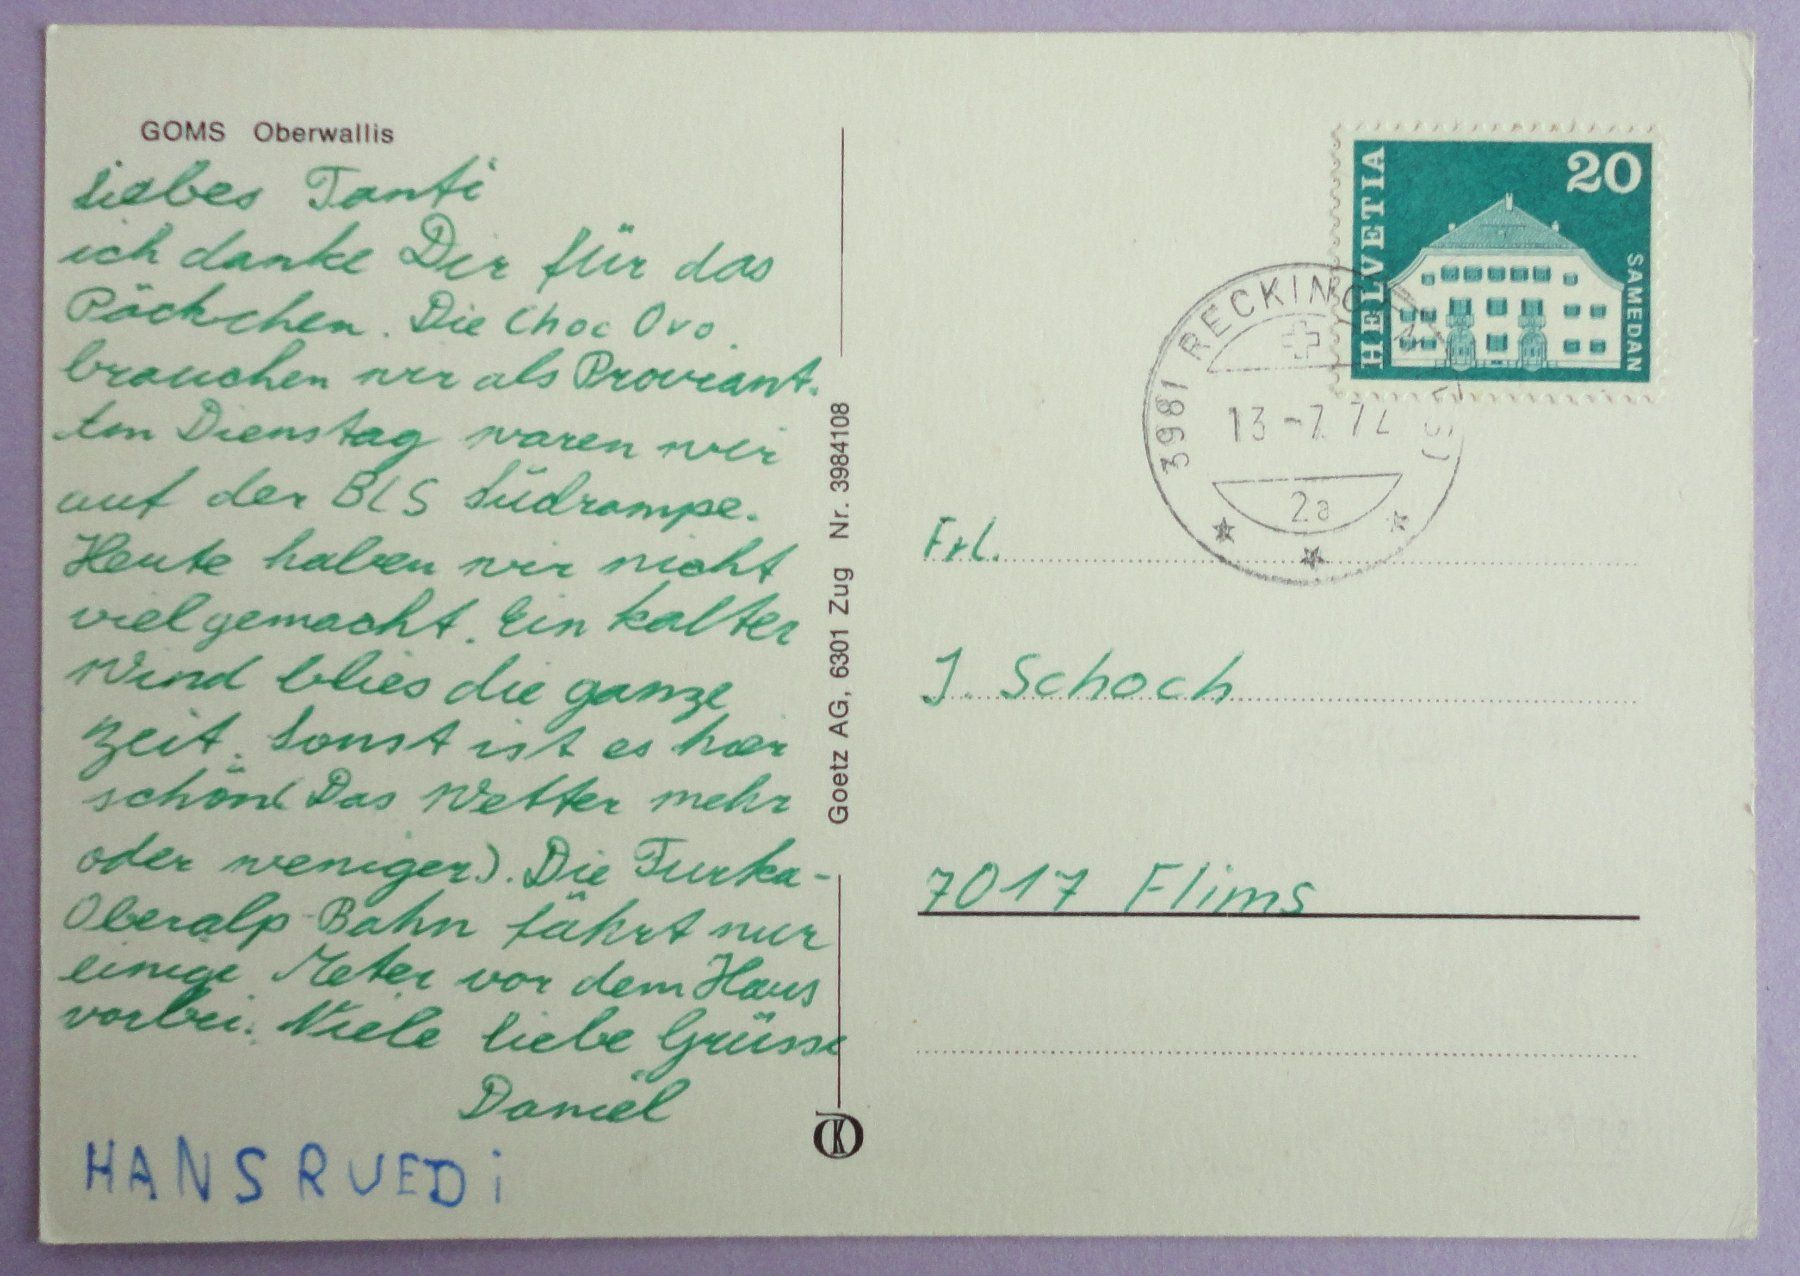 GOMS Oberwallis
Liebes Tanti
ich danke Dir für das
Päckchen. Die Choc Ovo
brauchen wir als Proviant.
Am Dienstag waren wir
auf der BLS Südrampe.
Heute haben wir nicht
viel gemacht. Ein kalter
Wind blies die ganze
Zeit. Sonst ist es hier
schön (Das Wetter mehr
oder weniger). Die Furka-
Oberalp-Bahn fährt nur
einige Meter vor dem Haus
vorbei. Viele liebe Grüsse
Daniel
HANSRUEDi
Goetz AG, 6301 Zug Nr. 3984108
HELVETIA
20
SAMEDAN
3981 RECKING
13-7.72
2a
Frl.
J. Schoch
7017 Flims